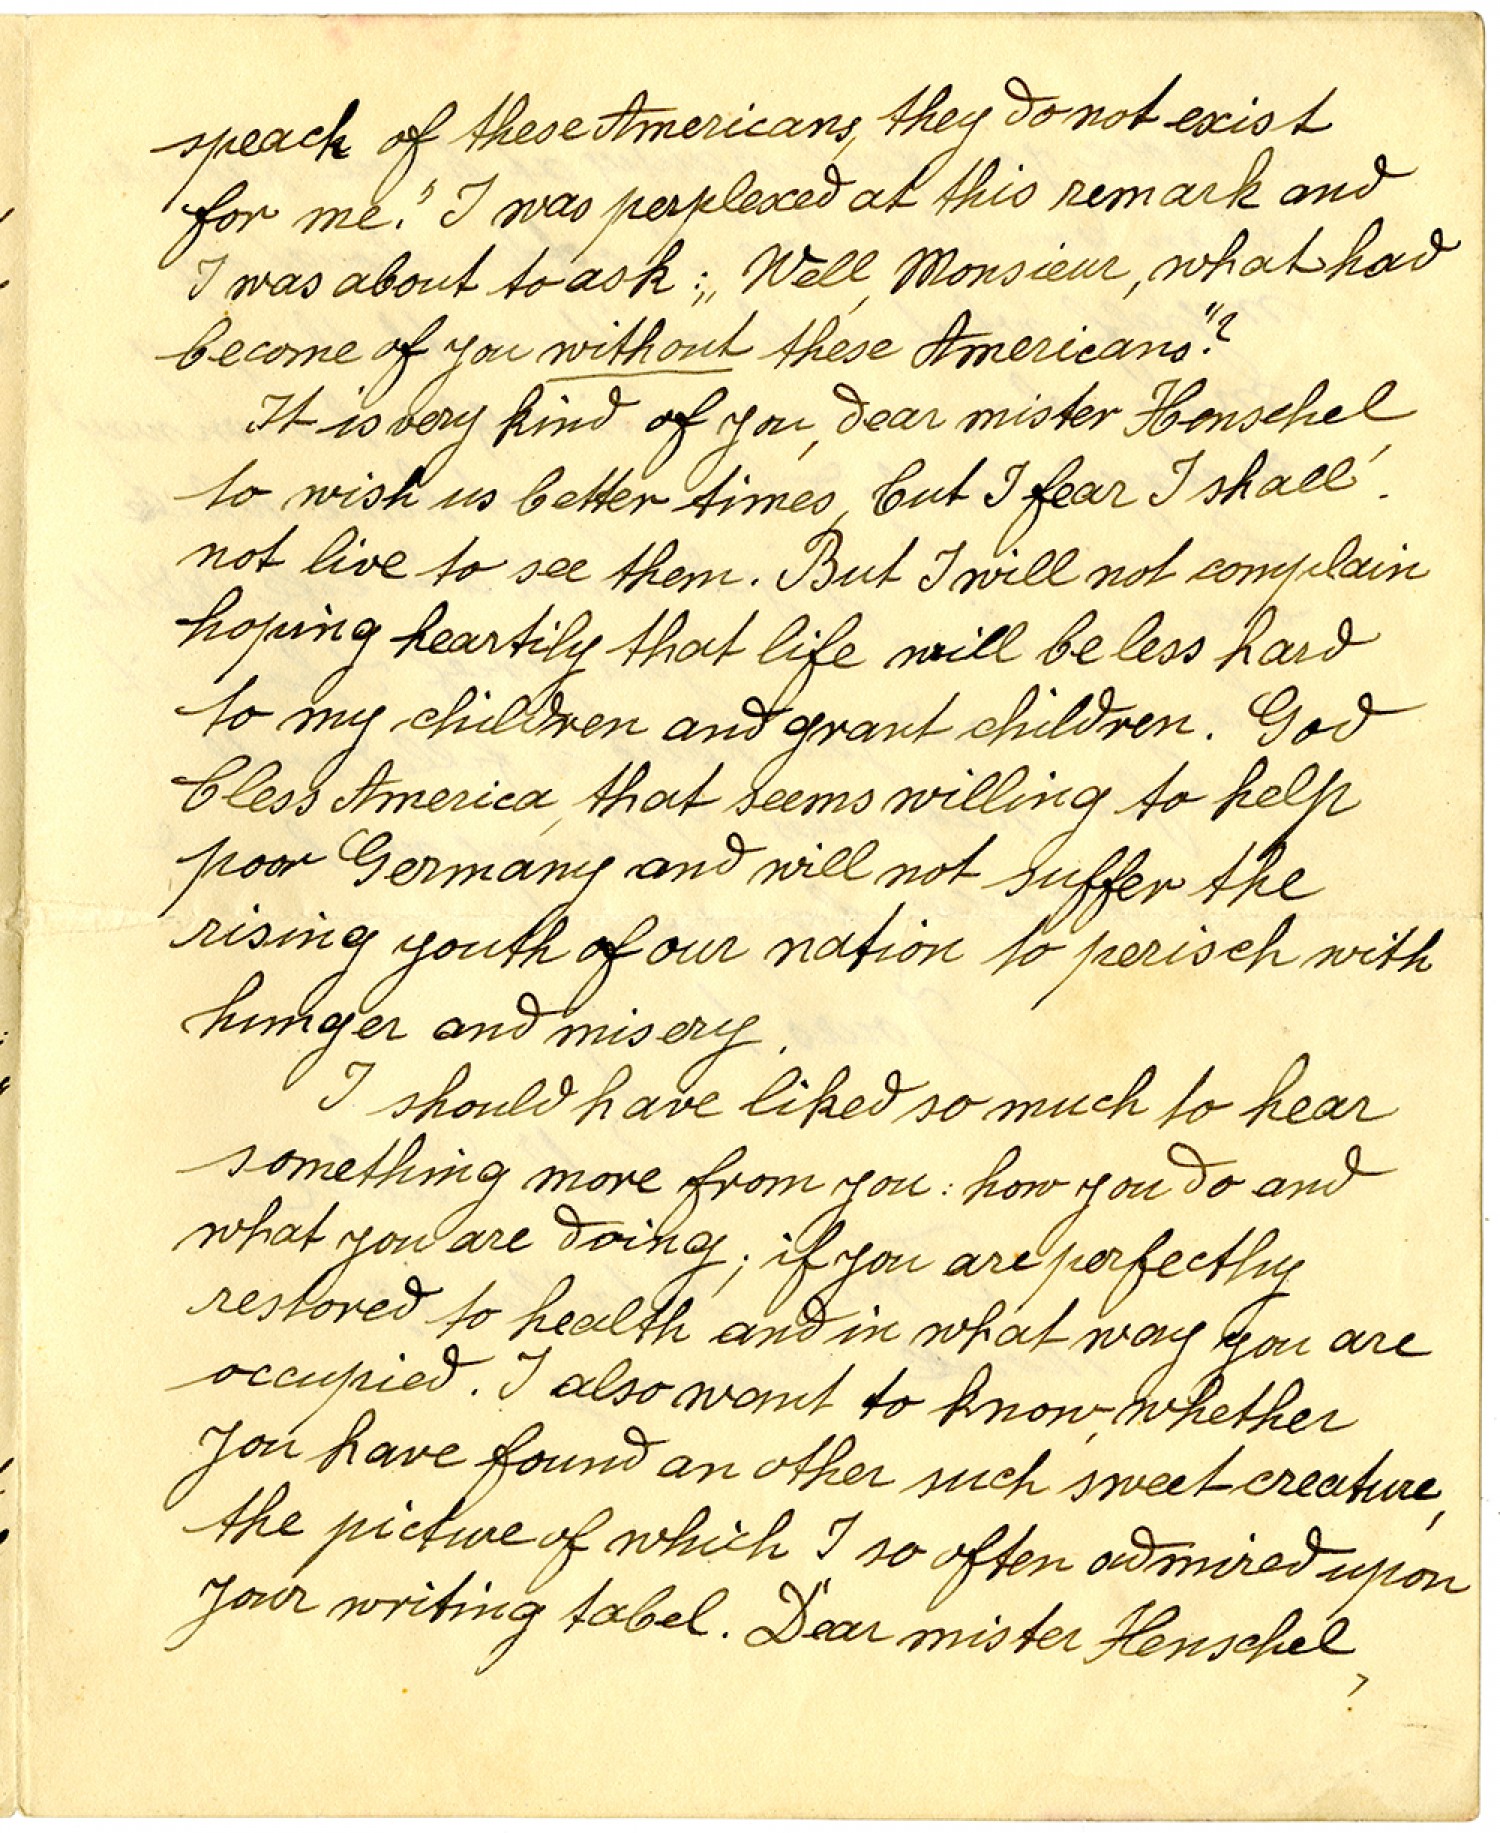 speach of these Americans, they do not exist
for me." I was perplexed at this remark and
I was about to ask: „Well, Monsieur, what had
become of you without these Americans"?
It is very kind of you, dear mister Henschel,
to wish us better times, but I fear I shall
not live to see them. But I will not complain
hoping heartily that life will be less hard
to my children and grant children. God
bless America, that seems willing to help
poor Germany and will not suffer the
rising youth of our nation to perisch with
hunger and misery.
I should have liked so much to hear
something more from you: how you do and
what you are doing; if you are perfectly
restored to health and in what way you are
occupied. I also want to know, whether
you have found an other such sweet creature,
the picture of which I so often admired upon
your writing tabel. Dear mister Henschel,